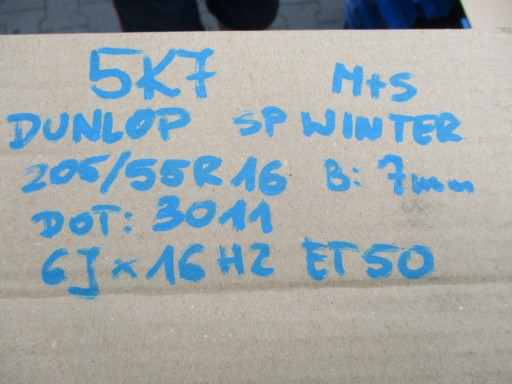 5K7 M+S
DUNLOP SP WINTER
205/55R16 B: 7mm
DOT: 3011
6J x 16 H2 ET50